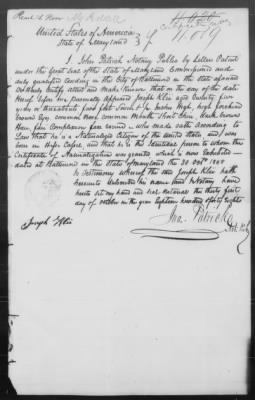 United States of America
State of Maryland
I. John Patrick Notary Public by Letters Patent
under the Great Seal of the State of Maryland Commissioned and
duly qualified residing in the City of Baltimore in the State aforesaid
Do hereby Certify attest and make Known that on the day of the date
hereof before me Personally Appeared Joseph Klein aged twenty five
high, high forehead
Brown Eyes, common Nose, common Mouth Short Chin, Dark brown
Hair fair Complexion face round, who made oath according to
Law that he is a Naturalized Citizen of the United States and was
born in and that he is the Identical person to whom the
Certificate of Naturalization was granted which is now Exhibited
dated at Baltimore in the State of Maryland the 30 Oct 1848
In testimony whereof the said Joseph Klein hath
hereunto Subscribed his name and Notary have
hereto set my hand and Seal Notarial the thirty first
day of October in the year Eighteen hundred & forty eight
Joseph Klein
Jno. Patrick
Not. Pub.